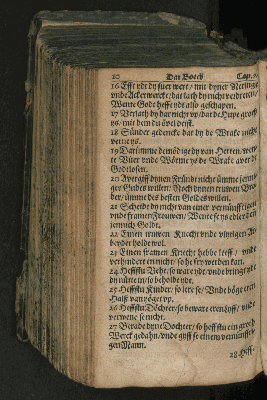 20 Dat Boeck Cap. 7.
16 Efft ydt dy suer wert / mit dyner Neringe
vnde Ackerwercke / dat lath dy nicht vordreten /
Wente Godt hefft ydt also geschapen.
17 Vorlath dy dar nicht vp / dat de Hupe groth
ys / mit dem du övel deist.
18 Sünder gedencke dat dy de Wrake nicht
verne ys.
19 Darümme demödige dy van Herten / wen
te Vüer vnde Wörme ys de Wrake aver de
Godtlosen.
20 Avergiff dynen Fründt nicht ümme jeni
ger Gudes willen / Noch dynen truwen Bro
der / ümme des besten Goldes willen.
21 Scheide dy nicht van einer vernünfftigen
vnde framen Frouwen / Wente se ys edler den
jennich Goldt.
22 Einen truwen Knecht vnde vlytigen Ar
beyder holde wol.
23 Einen framen Knecht hebbe leeff / vnde
vorhindere en nicht / so he fry werden kan.
24 Heffstu Vehe / so ware ydt / vnde bringt ydt
dy nütte in / so beholdt ydt.
25 Heffstu Kinder / so lere se / Vnde böge eren
Halß van jöget vp.
26 Heffstu Döchter / so beware eren lyff / vnde
vorwene se nicht.
27 Berade dyne Dochter / so heffstu ein groth
Werck gedahn / vnde giff se einem vornünffti
gen Manne.
28 Heff-